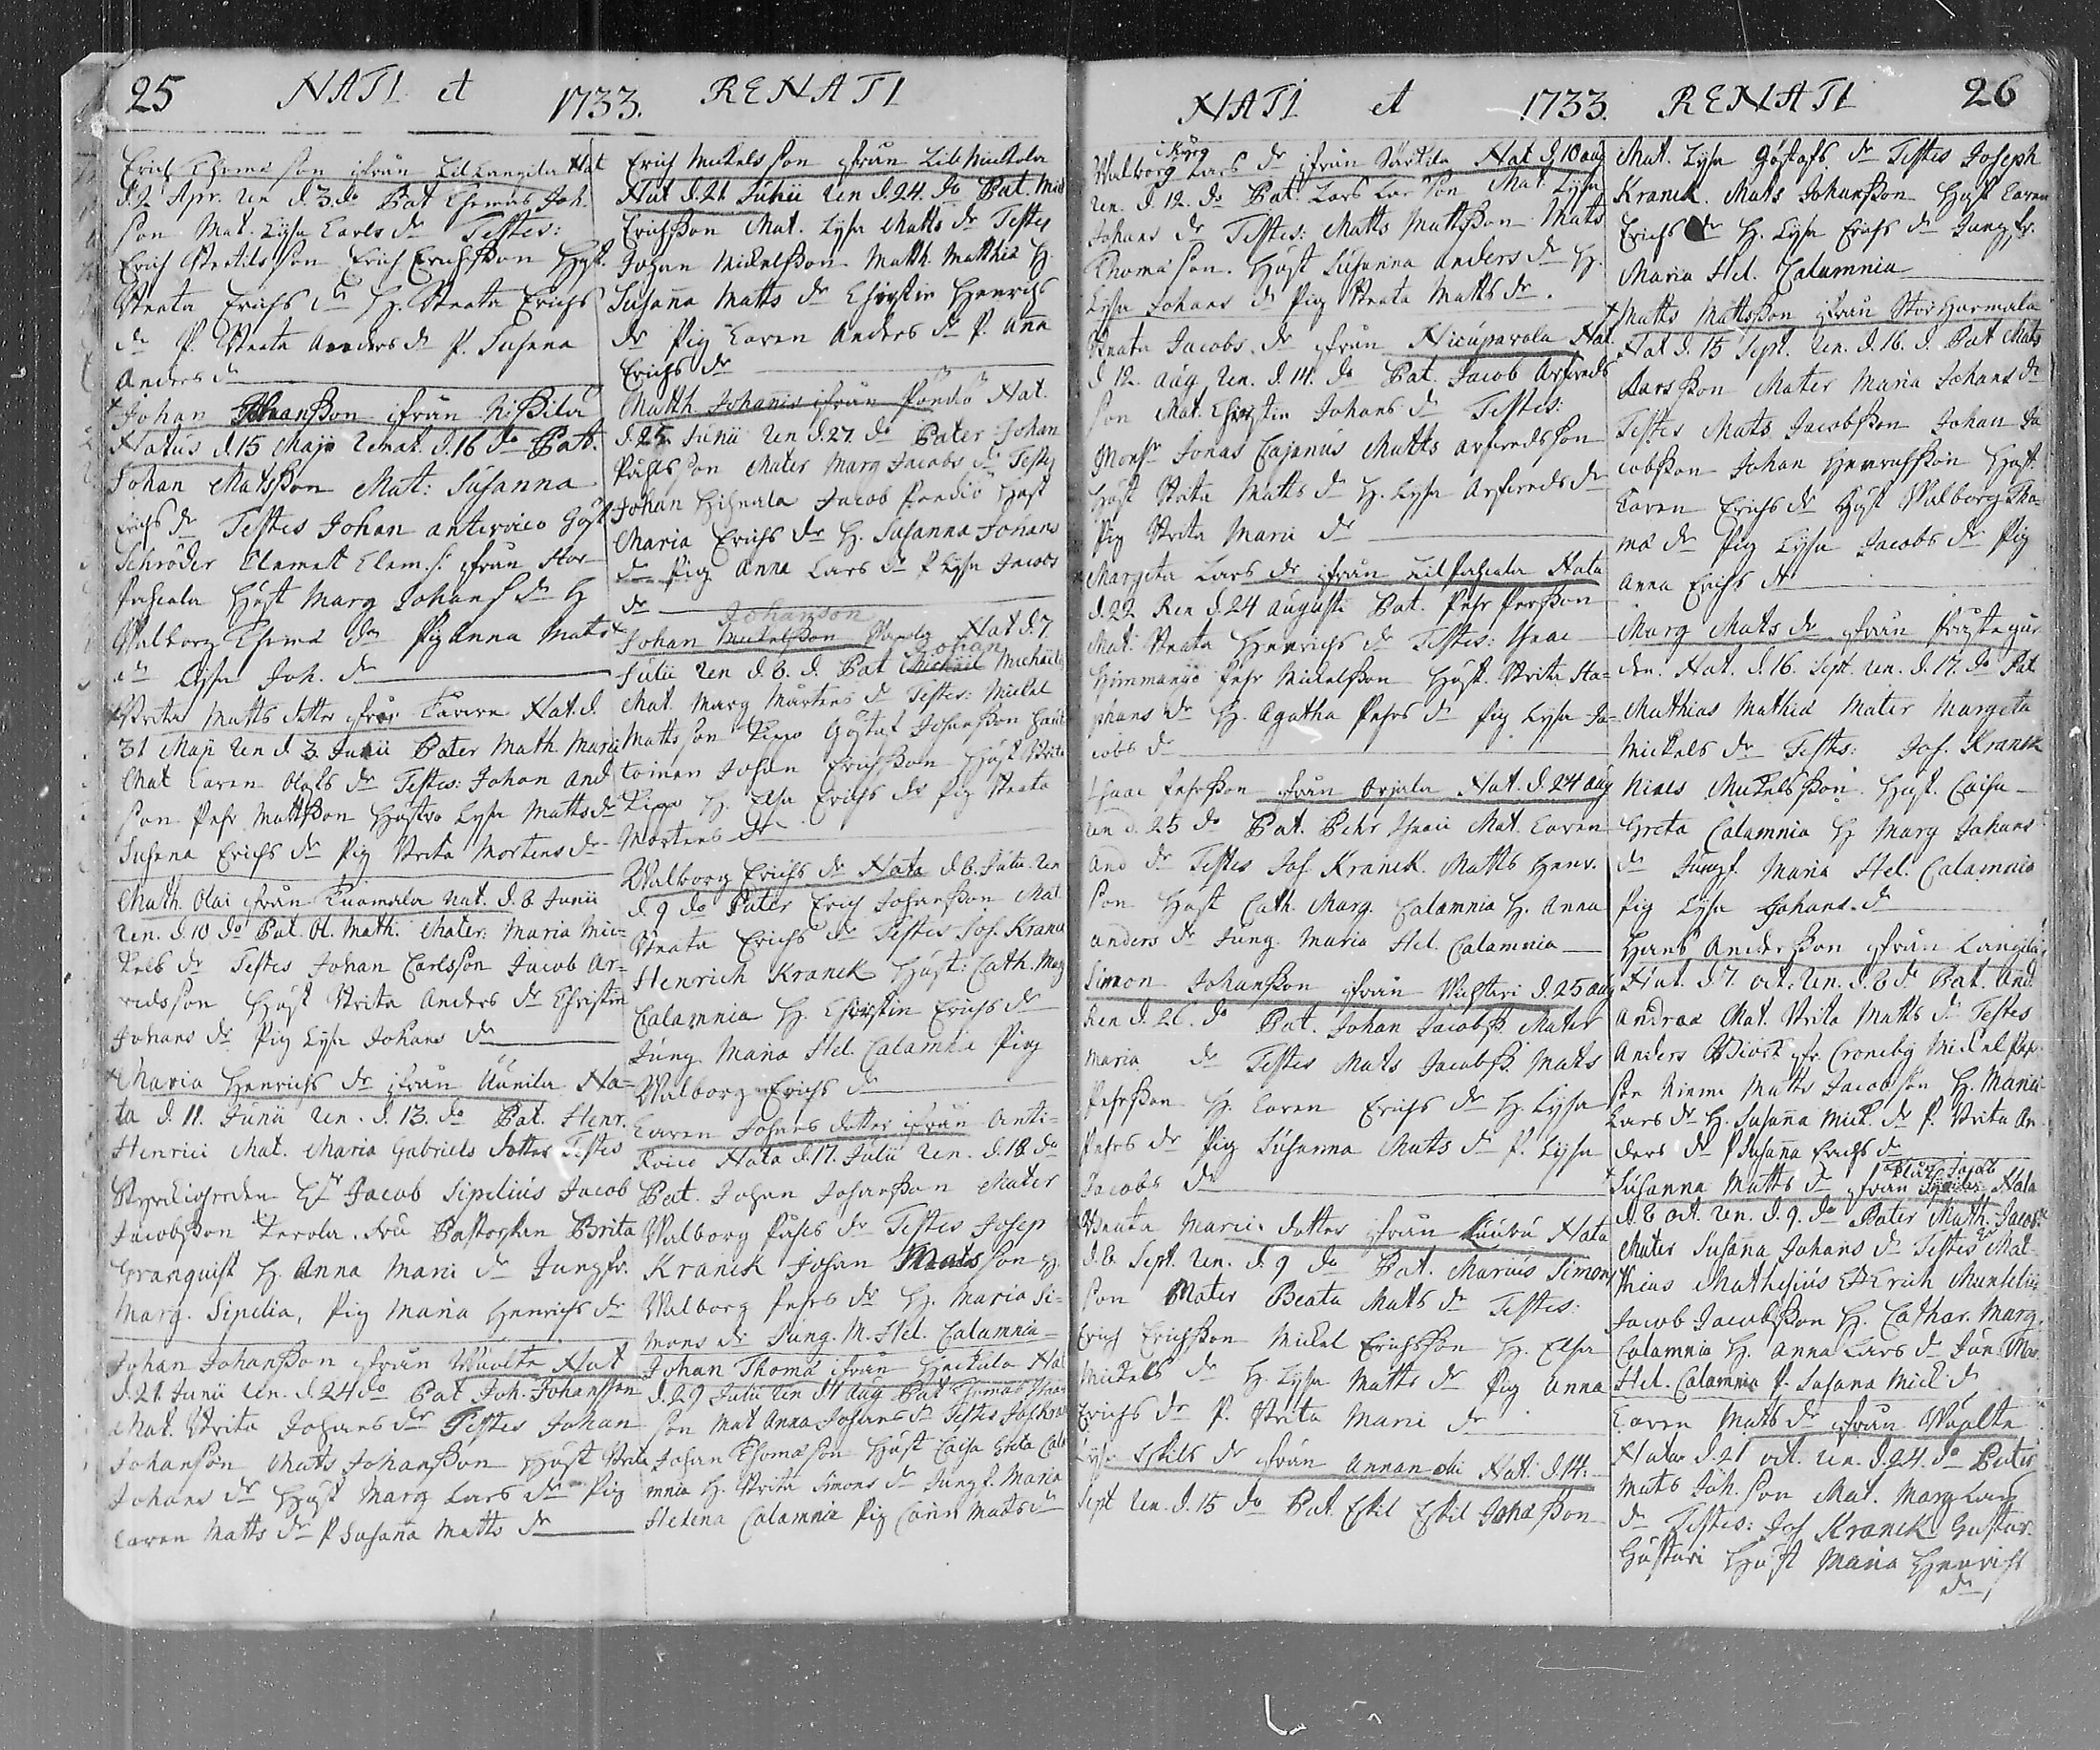 25 NATI et 1733. RENATI
Erich Thomæ son ifrån Lillangila Nat
d. 2 Apr. Ren d. 3. do Pat Thomas Joh.
son Mat. Lysa Carls dr Testes:
Erich Bertilsson Erich Erichsson Hust.
Beata Erichs dr H. Beata Erichs
dr P. Beata Anders dr P. Susana
Anders dr
Johan Johansson ifrån Nissilä
Natus d. 15 Maji Renat. d. 16 do Patr.
Johan Matsson Mat: Susanna
Erichs dr Testes Johan anteroico Göst
Schröder Clemet Clem. s. ifrån Stor
Pascala Hust Marg Johans dr H
Walborg Thomæ dr Pig Anna Mats
dr Lysa Joh. dr
Brita Matts dotter ifrån Nat. d.
31 Maji Ren d 3 Junii Pater Math. Marci
Mat Caren Olofs dr Testes: Johan And
son Pehr Mattsson Hustro Lysa Matts dr
Susana Erichs dr Pig Brita Mortens dr
Math. Olai ifrån Tuomala nat. d. 8 Junii
Ren. d. 10 do Pat. Ol. Math. Mater. Maria Mic=
kels dr Testes Johan Carlsson Jacob Ar=
vidsson Hust Brita Anders dr Christin
Johans dr Pig Lysa Johans dr
Maria Henrichs dr ifrån Uunila Na=
ta d. 11. Junii Ren. d. 13. do Pat. Henr.
Henrici Mat. Maria Gabriels dotter Testes
Hr Jacob Sipelius Jacob
Jacobsson Terola. Fru Pastorskan Brita
Granquist H. Anna Marci dr Jungfr.
Marg. Sipelia, Pig Maria Henrichs dr
Johan Johansson ifrån Wuolte Nat
d. 21 Junii Ren. d. 24 do Pat Joh. Johansson
Mat. Brita Johans dr Testes Johan
Johanson Mats Johansson Hust Brita
Johans dr Hust Marg Lars dr Pig
Caren Matts dr P Susaña Matts dr
Erich Mickels son ifrån Lill Mickola
Nat d. 21 Junii Ren d. 24. do Pat. Mick
Erichsson Mat. Lysa Matts dr Testes
Johan Mickelsson Matth. Matthiæ H.
Susaña Matts dr Christin Henrichs
dr Pig Caren Anders dr P. Aña
Erichs dr
Matth Johanis ifrån Pondiö Nat.
d. 25. Junii Ren d. 27. do Pater Johan
Påhls son Mater Marg Jacobs dr Testes
Johan Hihnala Jacob Pondiö Hust
Maria Erichs dr H. Susanna Johans
dr Pig Anna Lars dr P Lysa Jacobs
dr
Johanson
Johan Mickelsson Nat d. 7
Johan
Julii Ren d. 8. d. Pat Michael Michaelis
Mat. Marg Mårtens dr Testes: Mickel
Mattsson Rippo Göstaf Johansson Hau
toinen Johan Erichsson Hust Brita
Rippo H. Elsa Erichs dr Pig Beata
Mortens dr
Walborg Erichs dr Nata d. 8. Julii. Ren
d. 9 do Pater Erich Johansson Mat
Beata Erichs dr Testes Jos. Kranck
Henrich Kranck Hust: Cath. Marg
Calamnia H. Christin Erichs dr
Jung. Maria Hel. Calamnia Pig
Walborg Erichs dr
Caren Johans dotter ifrån Anti=
Roico Nata d. 17. Julii Ren. d. 18 do
Pat. Johan Johansson Mater
Walborg Påhls dr Testes Josep
Kranck Johan Matsson H.
Walborg Pehrs dr H. Maria Si=
mons dr Jung. M. Hel. Calamnia
Johan Thomæ ifrån Heickula Nat
d. 29 Julii Ren d 1 Aug Pat Thomas
son Mat Anna Johans dr Testes Jos Kra
Johan Thomasson Hust Caisa Greta Cala
mnia H. Brita Simons dr Jungf. Maria
Helena Calamnia Pig Carin Mats dr
NATI et 1733. RENATI 26
Walborg Lars dr ifrån Särkilä Nat d. 10 aug
Ren. d. 12. do Pat. Lars Larsson Mat. Lysa
Johans dr Testes: Matts Mattsson Mats
Thomæ son. Hust Susanna Anders dr H.
Lysa Johans dr Pig Beata Matts dr.
Beata Jacobs. dr ifrån Nicuparola Nat.
d 12. aug Ren. d. 14. do Pat. Jacob Arfveds
son Mat. Christin Johans dr Testes:
Monsr Jonas Cajanus Matts Arfvedsson
Hust Brita Matts dr H. Lysa Arfveds dr
Pig Brita Marci dr
Margeta Lars dr ifrån Lillpascala Nata
d. 22 Ren d. 24 Augusti Pat. Pehr Persson
Mat. Beata Henrichs dr Testes: Isaac
Himmanijö Pehr Mickelsson Hust. Brita Sta=
phans dr H. Agatha Pehrs dr Pig Lysa Ja=
cobs dr
Isaac Pehrsson ifrån Orjala Nat. d. 24 aug
Ren d. 25 do Pat. Pehr Isaaci Mat. Caren
And dr Testes Jos. Kranck. Matts Henr.
son Hust Cath. Marg. Calamnia H. Anna
Anders dr Jung. Maria Hel. Calamnia
Simon Johansson ifrån Wichteri d. 25 aug
Ren d. 26. do Pat. Johan Jacobss. Mater
Maria dr Testes Mats Jacobss. Mats
Pehrsson H. Caren Erichs dr H. Lysa
Pehrs dr Pig Susanna Matts dr P. Lysa
Jacobs dr
Beata Marci dotter ifrån Luuru Nata
d. 8. Sept. Ren. d. 9 do Pat. Marcus Simons
son Mater Beata Matts dr Testes:
Erich Erichsson Mickel Erichsson H. Elsa
Mickels dr H. Lysa Matts dr Pig Anna
Erichs dr P. Brita Marci dr
Lysa Eskils dr ifrån Annandi Nat: d. 14.
Sept Ren. d. 15 do Pat. Eskil Eskil Johasson
Mat. Lysa Göstafs dr Testes Joseph
Kranck. Mats Johansson Hust Caren
Erichs dr H. Lysa Erichs dr Jungfr.
Maria Hel. Calamnia
Matts Mattsson ifrån Storharmala
Nat d. 15 Sept. Ren. d. 16. d. Pat Mats
Larsson Mater Maria Johans dr
Testes Mats Jacobsson Johan Ja
cobsson Johan Henrichsson Hust.
Caren Erichs dr Hust Walborg Tho=
mæ dr Pig Lysa Jacobs dr Pig
Anna Erichs dr
Marg Mats dr ifrån Prästegår
den. Nat. d. 16. Sept. Ren. d. 17. do Pat
Mathias Mathiæ Mater Margeta
Mickels dr Testes: Jos. Kranck
Niels Mickelsson. Hust. Caisa
Greta Calamnia H Marg Johans
dr Jungf. Maria Hel. Calamnia
Pig Lysa Johans. dr
Hans Andersson ifrån Langila,
Nat. d. 7. oct. Ren. d. 8 do Pat. And.
Andreæ Mat. Brita Matts dr Testes
Anders ifr. Croneby Mickel Pehr
son Niemi Matts Jacobson H. Maria
Lars dr H. Susaña Mick. dr P. Brita An
ders dr P Susaña Erichs dr
Susanna Matts dr ifrån Nata
d. 8 oct. Ren. d. 9. do Pater Math. Jacobi
Mater Susaña Johans dr Testes Mat
thias Mathesius Erich Munselius
Jacob Jacobsson H. Cathar. Marg.
Calamnia H. Anna Lars dr Jun. Mar.
Hel. Calamnia P. Susana Mick. dr
Caren Matts dr ifrån Wuolte
Nata d. 21 oct. Ren. d. 24. do Pater
Mats Joh. son Mat. Marg Lars
dr Testes: Jos Kranck Gustav.
Gustavi Hust Maria Henrichs
dr